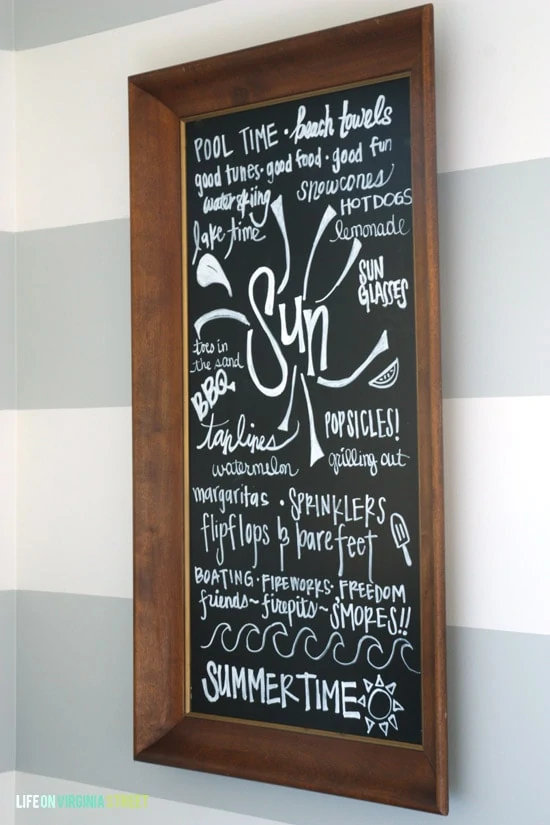 POOL TIME • beach towels
good tunes • good food • good fun
waterskiing snowcones
HOTDOGS
lake time lemonade
SUN
GLASSES
Sun
toes in
the sand
BBQ
tanlines POPSICLES!
watermelon grilling out
margaritas • SPRINKLERS
flipflops & bare feet
BOATING • FIREWORKS • FREEDOM
friends ~ firepits ~ S'MORES!!
SUMMERTIME
LIFE ON VIRGINIA STREET